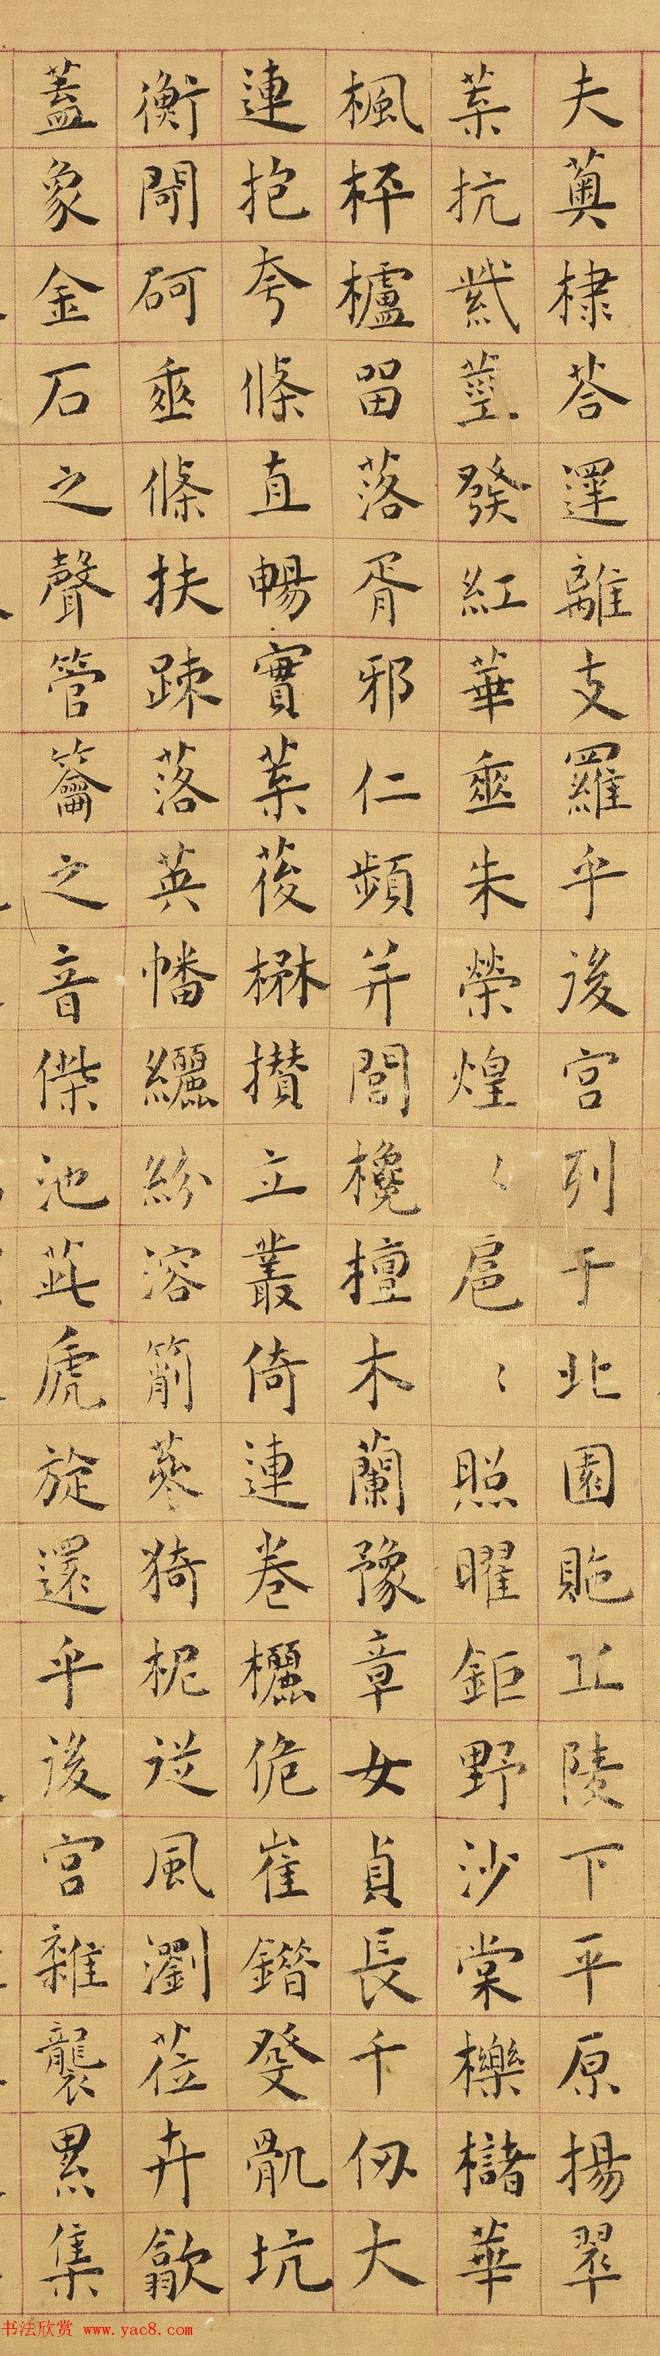 夫薁棣荅遝離支羅乎後宮列于北園貤丘陵下平原揚翠
葉抗紫莖發紅華垂朱榮煌〻扈〻照曜鉅野沙棠櫟櫧華
楓枰櫨留落胥邪仁頻并閭欃檀木蘭豫章女貞長千仞大
連抱夸條直暢實葉葰楙攢立叢倚連卷欐佹崔錯癹骫坑
衡閜砢垂條扶疎落英幡纚紛溶箾蔘猗柅從風瀏莅卉歙
蓋象金石之聲管籥之音偨池茈虒旋還乎後宮雜襲累集
书法欣赏 www.yac8.com